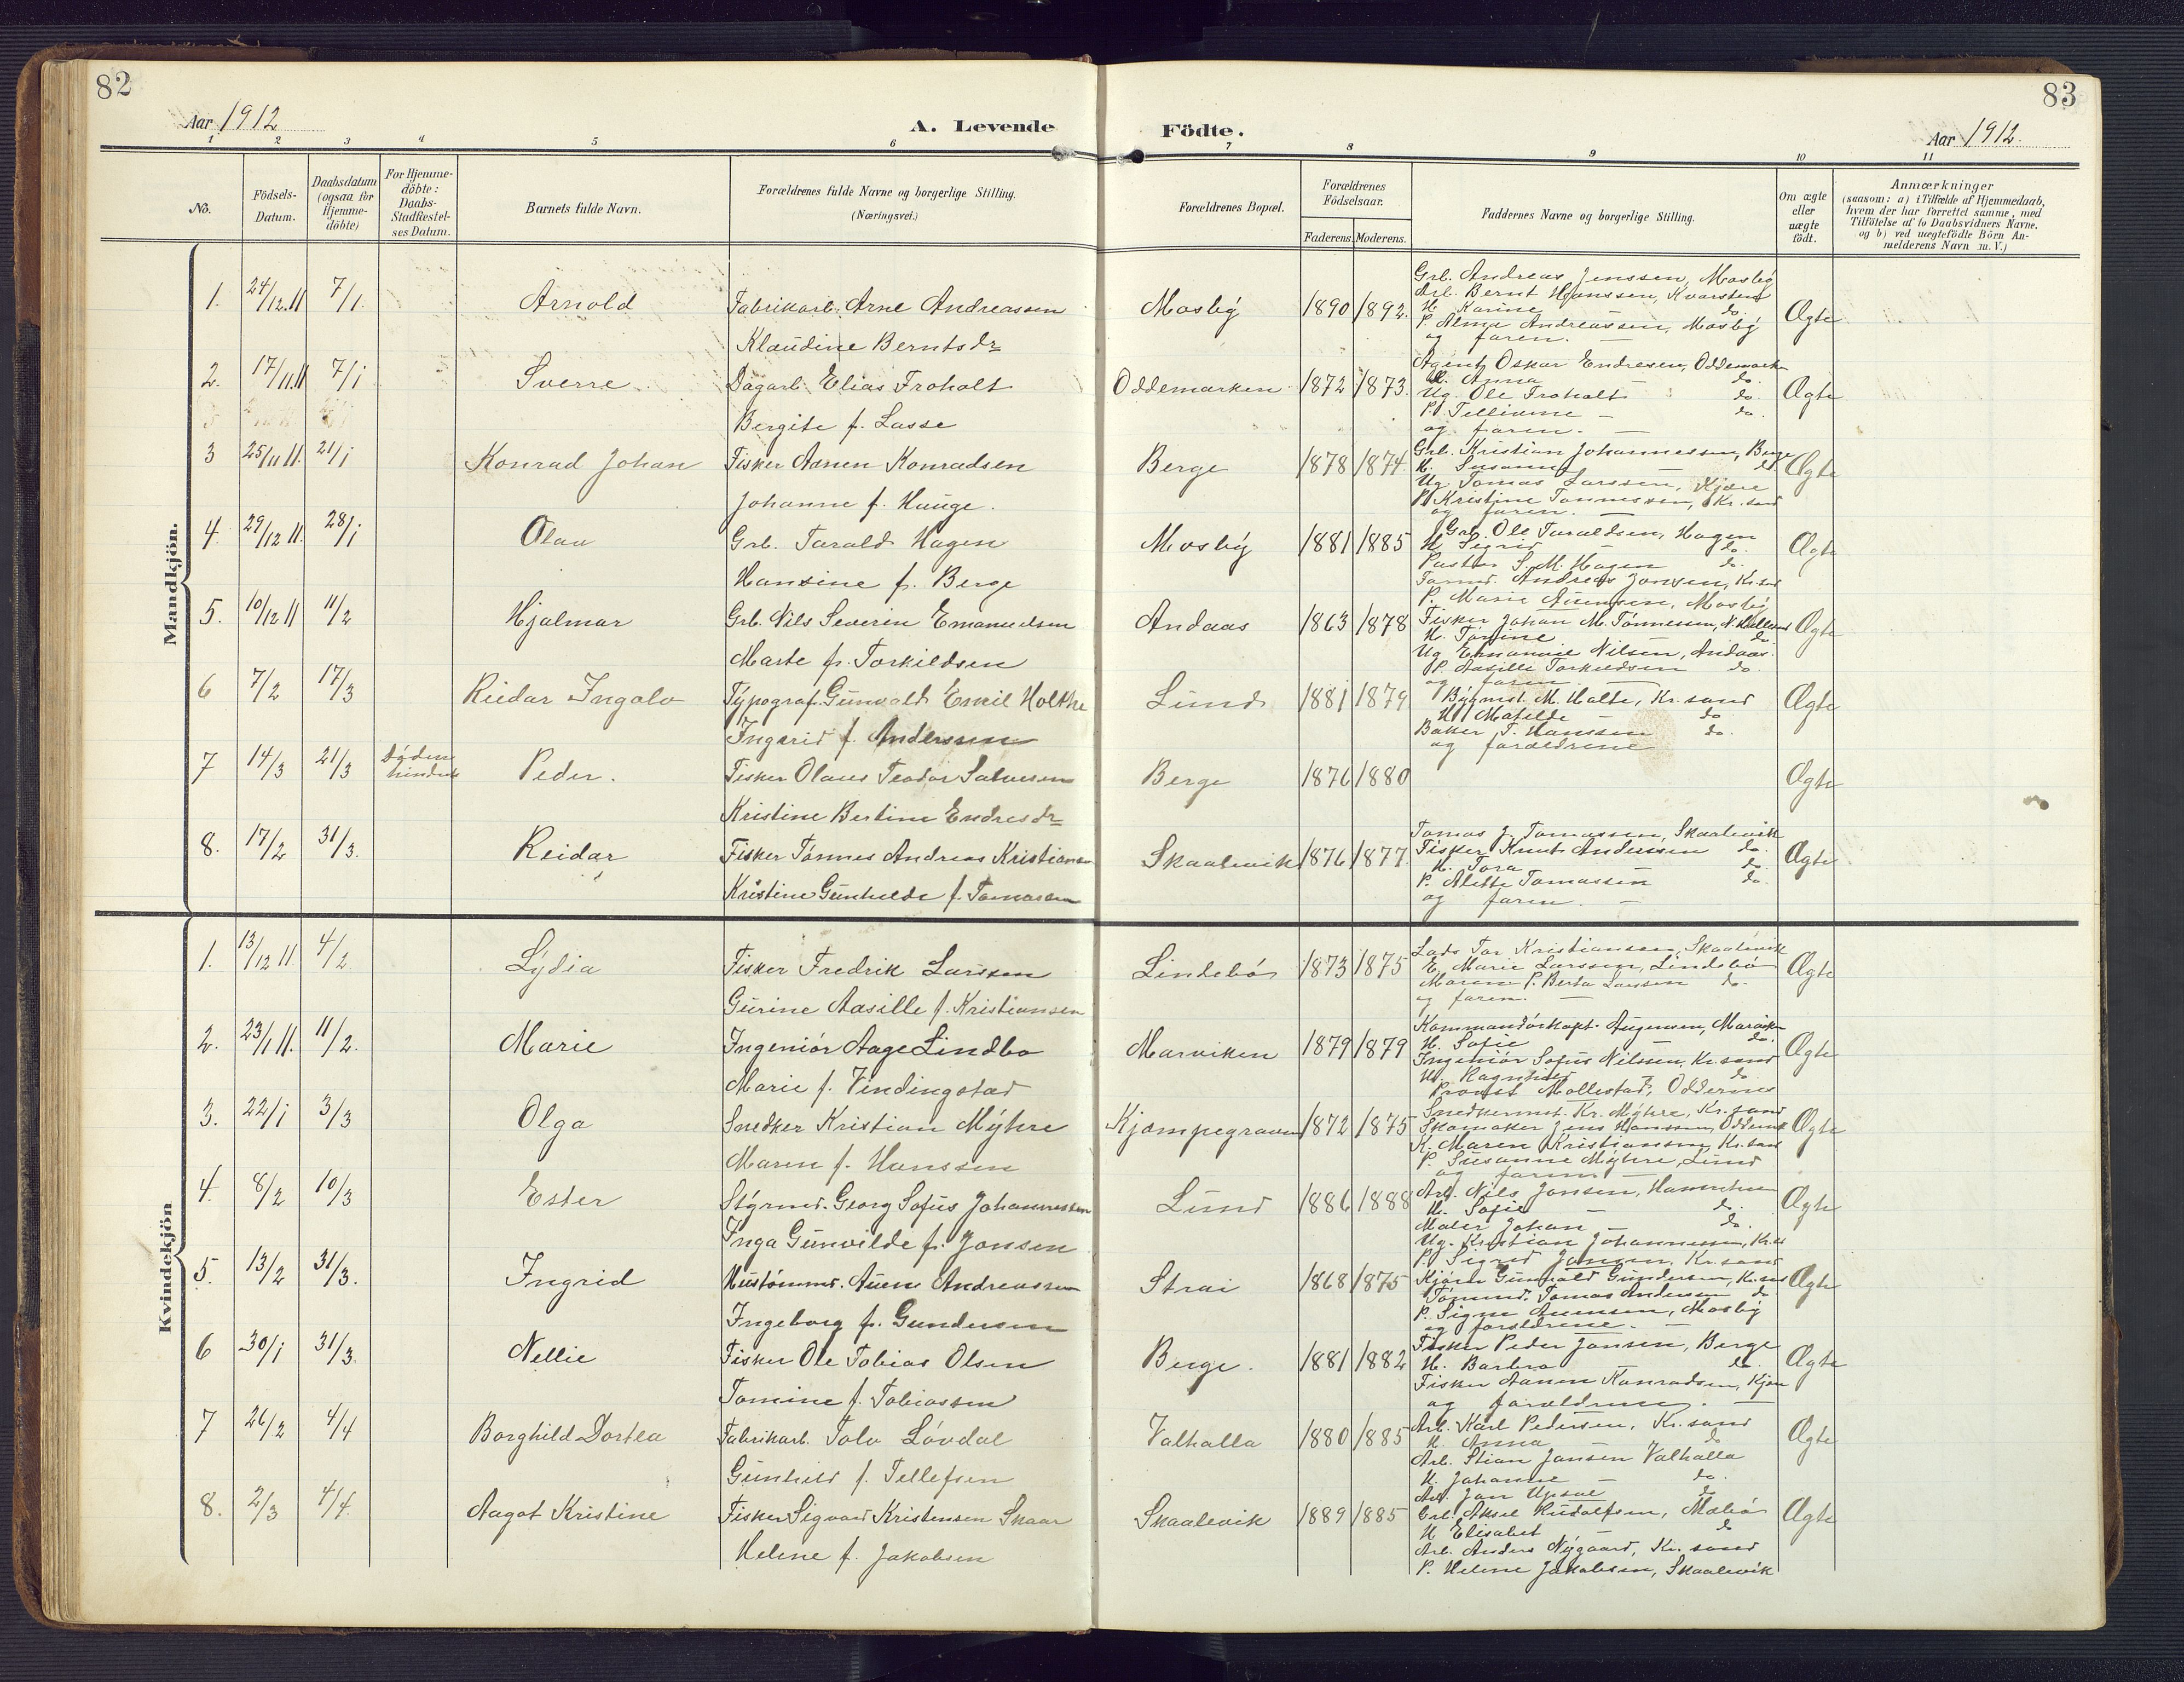 82
83
Aar 1912
A. Levende
Födte.
Aar 1912.
1 2 3 4 5 6 7 8 9 10 11
No.
Födsels-
Datum.
Daabsdatum
(ogsaa for
Hjemme-
döbte)
For Hjemme-
döbte:
Daabs-
Stadfestel-
ses Datum.
Barnets fulde Navn.
Forældrenes fulde Navne og borgerlige Stilling.
(Næringsvei.)
Forældrenes Bopæl.
Forældrenes
Födselsaar.
Faderens. Moderens.
Faddernes Navne og borgerlige Stilling.
Om ægte
eller
uægte
födt.
Anmærkninger
(saasom: a) i Tilfælde af Hjemmedaab,
hvem der har forrettet samme, med
Tilföielse af to Daabsvidners Navne,
og b) ved uægtefödte Börn An-
melderens Navn m. V.)
Mandkjön.
1. 24/12.11 7/1. Arnold Fabrikarb. Arne Andreassen Mosby 1890 1892. Ægte
Klaudine Berntsdr
Grb. Andreas Jenssen, Mosby
Arb. Bernt Hanssen, Kvarstein
H. Karine do.
P. Alma Andreassen, Mosby
og faren.
2. 17/11.11 7/1 Sverre Dagarb. Elias Froholt Oddemarken 1872 1873. Ægte
Bergite f. Lasse
Agent Oskar Endresen, Oddemark
H. Anna do.
Ug. Ole Froholt do
P. Tellivine do.
og faren.
3 25/11 11. 21/1 Konrad Johan Fisker Aanen Konradsen Berge 1878 1874. Ægte
Johanne f. Hauge.
Grb. Kristian Johannessen, Berge
H. Susanne do
Ug Tomas Larssen, Kjære
P. Kristine Tønnessen, Kr.sand
og faren.
4. 29/12 11. 28/1 Olav Grb. Tarald Hagen Mosby 1881 1885 Ægte
Hansine f. Berge
Grb. Ole Taraldsen, Hagen
H. Sigrid do.
Pastor S. M. Hagen do.
Tømmd. Andreas Jonsen, Kr.sand
P. Marie Auensen, Mosby
5. 10/12 11 11/2 Hjalmar Grb. Nils Severin Emanuelsen Andaas 1863 1878 Ægte
Marte f. Torkildsen
Fisker Johan M. Tønnessen,
H. Tomine do.
Ug Emanuel Nilsen, Andaas.
P. Aasille Torkildsen do.
og faren.
6 7/2 17/3 Riedar Ingolv Typograf. Gunvald Emil Holthe Lund 1881 1879 Ægte
Ingerid f. Anderssen
Bygmst. M. Holte, Kr.sand
H. Matilde do
Baker T. Hanssen do.
og forældrene
7 14/3 21/3 Døden hindret Peder. Fisker Olaus Teodor Salvesen Berge 1876 1880 Ægte
Kristine Bertine Endresdr
8. 17/2 31/3. Reidar Fisker Tønnes Andreas Kristiansen Skaalevik 1876 1877. Ægte
Kristine Gunhilde f. Tomassen
Tomas J. Tomassen, Skaalevik
Fisker Knut Anderssen do.
H. Tora do.
P. Alette Tomassen do.
og faren.
Kvindekjön
1. 13/12 11. 4/2 Lydia Fisker Fredrik Larssen Lindebø 1873 1875 Ægte
Gurine Aasille f. Kristiansen
Lods Tor Kristiansen, Skaalevik
E. Marie Larssen, Lindebø
P. Berta Larssen do.
og faren.
2. 23/1 11. 11/2. Marie Ingeniør Aage Lindbo Marviken 1879 1879 Ægte
Marie f. Vindingstad
Kommandørkapt. Augensen, Marviken
H. Sofie do.
Ingeniør Sofus Nilssen, Kr.sand
H. Ragnhild do
Provst Mollestad, Oddernes
3. 22/1 3/3 Olga Snedker Kristian Myhre Kjempegraven 1872 1875 Ægte
Maren f. Hanssen
Snedkermst. Kr. Myhre, Kr.sand
Skomaker Jens Hanssen, Oddemark
K. Maren Kristiansen, Kr.sand
P. Susanne Myhre, Lund
og faren
4. 8/2 10/3 Ester Styrmd. Georg Sofus Johannessen Lund 1886 1888 Ægte
Inga Gunvilde f. Jonsen
Arb. Nils Jonsen,
H. Sofie do.
Maler Johan do.
Ug. Kristian Johannessen, Kr.s
P. Sigrid Jonsen, Kr.sand
5. 13/2 31/3. Ingrid Hustømmr. Auen Andreassen Strai 1868 1875 Ægte
Ingeborg f. Gundersen
Kjøren Gunvald Gundersen, Kr.sand
Tømmd. Tomas Andersen do
P. Signe Auensen, Mosby
og forældrene.
6 30/1 31/3. Nellie Fisker Ole Tobias Olsen Berge. 1881 1882 Ægte
Tomine f. Tobiassen
Fisker Peder Jansen, Berge
H. Barbra do.
Fisker Aanen Konradsen, Kjære
og forældrene.
7 26/2 4/4 Borghild Dortea Fabrikarb. Tolv Løvdal Valhalla 1880 1885 Ægte
Gunhild f. Tellefsen
Arb. Karl Pedersen, Kr.sand
H. Anna do
Arb. Stian Jansen Valhalla
H. Johanne do.
Arb. Jan Upsal do
8. 2/3 4/4. Aagot Kristine Fisker Sigvard Kristensen Skaar Skaalevik 1889 1885 Ægte
Helene f. Jakobsen
Grb. Aksel Rudolfsen, Mæbø
H Elisabet do
Arb. Anders Nygaard, Kr.sand
P. Helene Jakobsen, Skaalevik